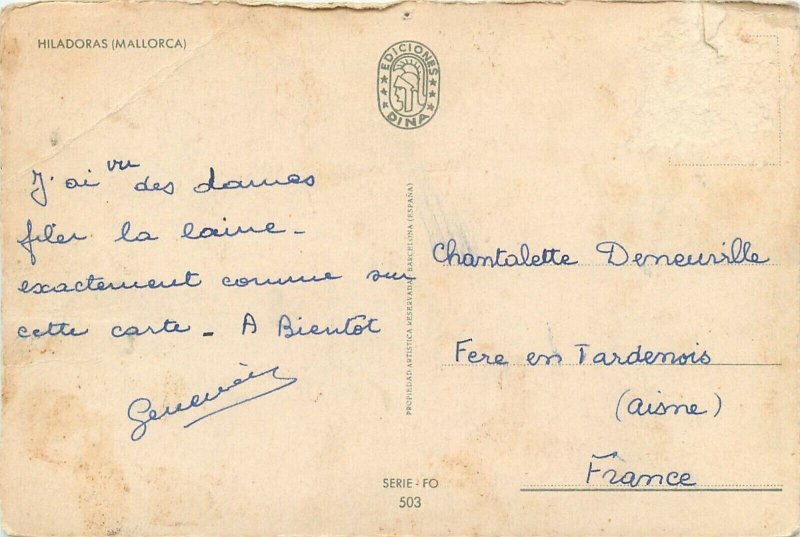 HILADORAS (MALLORCA)
EDICIONES
DINA
J'ai vu des dames
filer la laine -
exactement comme sur
cette carte - A Bientôt
Geneviève
PROPIEDAD ARTISTICA RESERVADA BARCELONA (ESPAÑA)
Chantalette Deneuville
Fere en Tardenois
(Aisne)
France
SERIE - FO
503